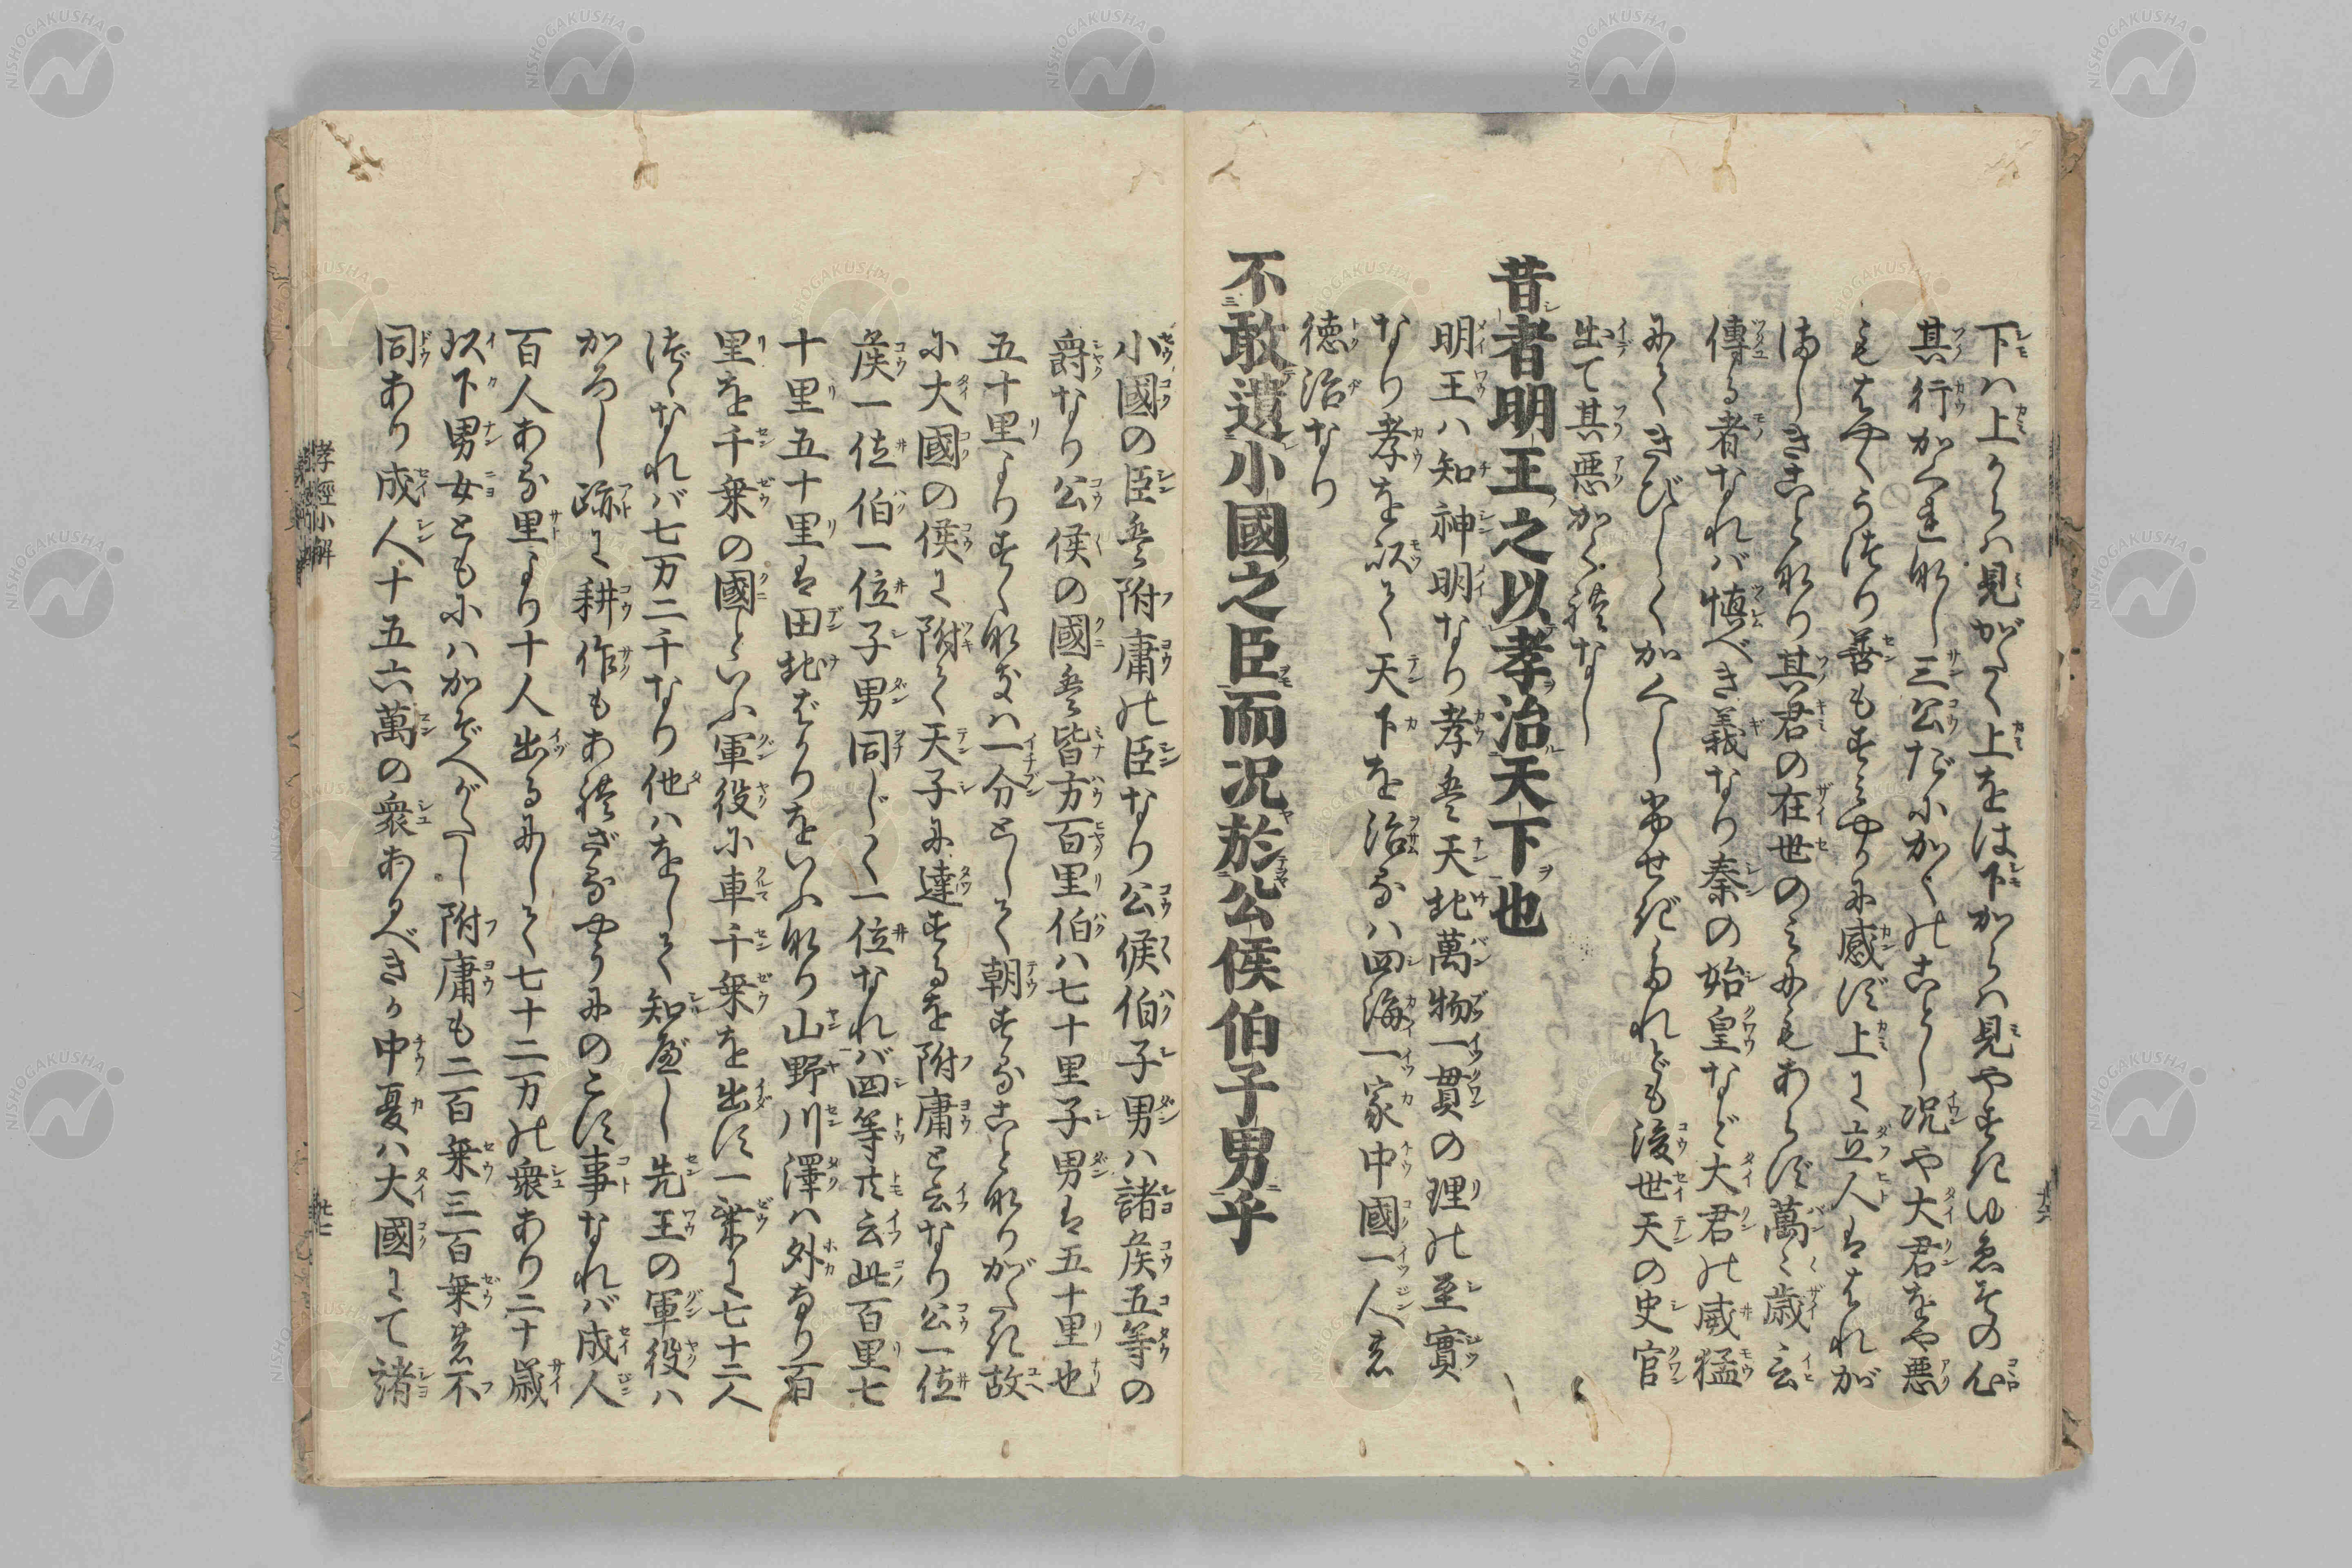 下ハ上からハ見がたく上をは下からハ見やすきゆゑその心
其行かくれなし三公だにかくのことし况や大君をや悪
もはやくうつり善もすみやかに感ず上に立人はこれが
ましきことなり其君の在世のみにもあらず萬々歳云
傳る者なれバ慎べき義なり秦の始皇など大君の威猛
にてきびしくかくし当せざれども後世天の史官
出て其悪かくれなし
昔者明王之以孝治天下也
明王ハ知神明なり孝は天地萬物一貫の理の至實
なり孝を以て天下を治るハ四海一家中國一人の
徳治なり
不敢遺小國之臣而况於公侯伯子男乎
小國の臣は附庸の臣なり公侯伯子男ハ諸侯五等の
爵なり公侯の國は皆方百里伯ハ七十里子男は五十里也
五十里よりすくなきハ一分として朝することなりがたき故
に大國の侯に附て天子に達するを附庸と云なり公一位
侯一位伯一位子男同じく一位なれバ四等共云此百里七
十里五十里は田地ばかりをいふなり山野川澤ハ外なり百
里を千乗の國といふ軍役に車千乗を出す一乗に七十二人
づゝなれバ七万二千なり他ハをして知べし先王の軍役ハ
かろし跡に耕作もあれざるやうにのこす事なれバ成人
百人ある里より十人出るにして七十二万の衆あり二十歳
以下男女ともにハかぞへがたし附庸も二百乗三百乗の不
同あり成人十五六萬の衆あるべきか中夏ハ大國にて諸
孝經小解
廿七